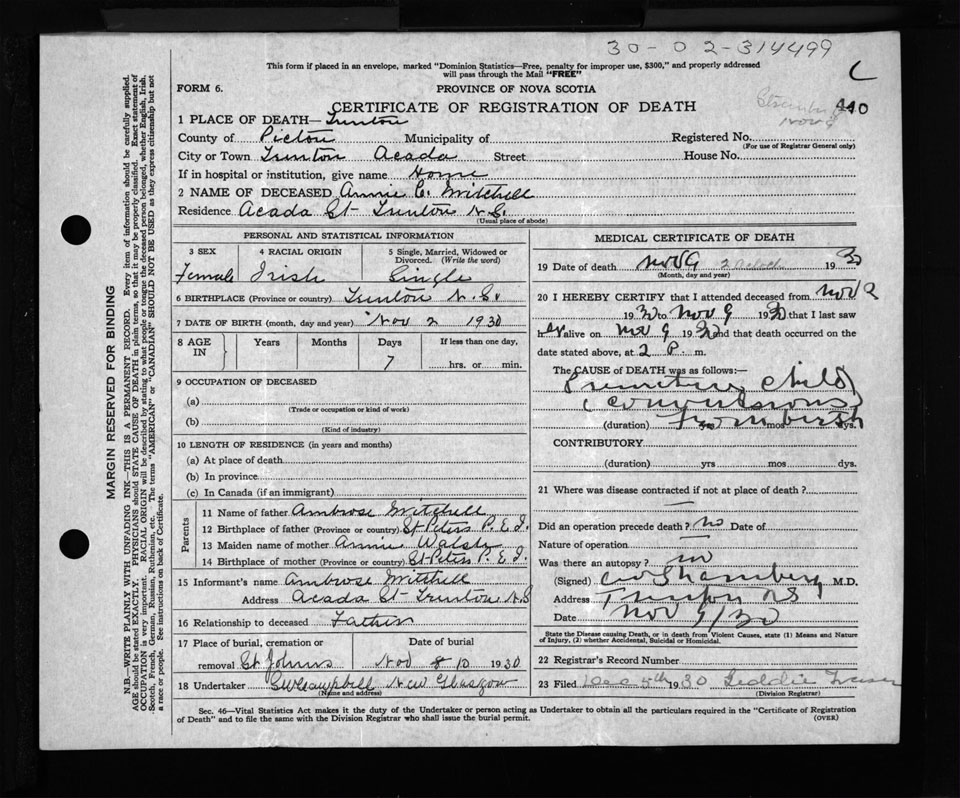 30-02-314499
This form if placed in an envelope, marked "Dominion Statistics—Free, penalty for improper use, $300," and properly addressed
will pass through the Mail "FREE"
FORM 6.
PROVINCE OF NOVA SCOTIA
CERTIFICATE OF REGISTRATION OF DEATH
MARGIN RESERVED FOR BINDING
N.B.—WRITE PLAINLY WITH UNFADING INK—THIS IS A PERMANENT RECORD. Every item of information should be carefully supplied.
AGE should be stated EXACTLY. PHYSICIANS should STATE CAUSE OF DEATH in plain terms, so that it may be properly classified. Exact statement of
OCCUPATION is very important. RACIAL ORIGIN will be described by stating to what people or tongue the deceased person belonged, whether English, Irish,
Scotch, French, German, Russian, Ruthenian, etc. The terms "AMERICAN" or "CANADIAN" SHOULD NOT BE USED as they express citizenship but not
a race or people. See instructions on back of Certificate.
1 PLACE OF DEATH— Trenton
County of Pictou Municipality of Registered No.
(For use of Registrar General only)
City or Town Trenton Acada Street House No.
If in hospital or institution, give name Home
2 NAME OF DECEASED Annie C. Mitchell
Residence Acada St Trenton N.S.
(Usual place of abode)
PERSONAL AND STATISTICAL INFORMATION
3 SEX 4 RACIAL ORIGIN 5 Single, Married, Widowed or Divorced. (Write the word)
Female Irish Single
6 BIRTHPLACE (Province or country) Trenton N.S.
7 DATE OF BIRTH (month, day and year) Nov 2 1930
8 AGE IN Years Months Days If less than one day,
7 hrs. or min.
9 OCCUPATION OF DECEASED
(a)
(Trade or occupation or kind of work)
(b)
(Kind of industry)
10 LENGTH OF RESIDENCE (in years and months)
(a) At place of death
(b) In province
(c) In Canada (if an immigrant)
Parents
11 Name of father Ambrose Mitchell
12 Birthplace of father (Province or country) St Peters P.E.I.
13 Maiden name of mother Annie Walsh
14 Birthplace of mother (Province or country) St Peters P.E.I.
15 Informant's name Ambrose Mitchell
Address Acada St Trenton N.S
16 Relationship to deceased Father
17 Place of burial, cremation or removal St Johns Date of burial Nov 10 1930
18 Undertaker Campbell New Glasgow
(Name and address)
MEDICAL CERTIFICATE OF DEATH
19 Date of death Nov 9 2 oclock 1930
(Month, day and year)
20 I HEREBY CERTIFY that I attended deceased from Nov 2
1930 to Nov 9 1930 that I last saw
her alive on Nov 9 1930 and that death occurred on
date stated above, at 2 P. m.
The CAUSE OF DEATH was as follows:—
Premature child
(convulsions)
(duration) From birth yrs mos dys.
CONTRIBUTORY
(duration) yrs mos dys.
21 Where was disease contracted if not at place of death?
Did an operation precede death? no Date of
Nature of operation
Was there an autopsy? no
(Signed) M.D.
Address Trenton NS
Date Nov 9/30
State the Disease causing Death, or in death from Violent Causes, state (1) Means and Nature
of Injury, (2) whether Accidental, Suicidal or Homicidal.
22 Registrar's Record Number
23 Filed Dec 5th 1930 Fraser
(Division Registrar)
Sec. 46—Vital Statistics Act makes it the duty of the Undertaker or person acting as Undertaker to obtain all the particulars required in the "Certificate of Registration
of Death" and to file the same with the Division Registrar who shall issue the burial permit. (OVER)